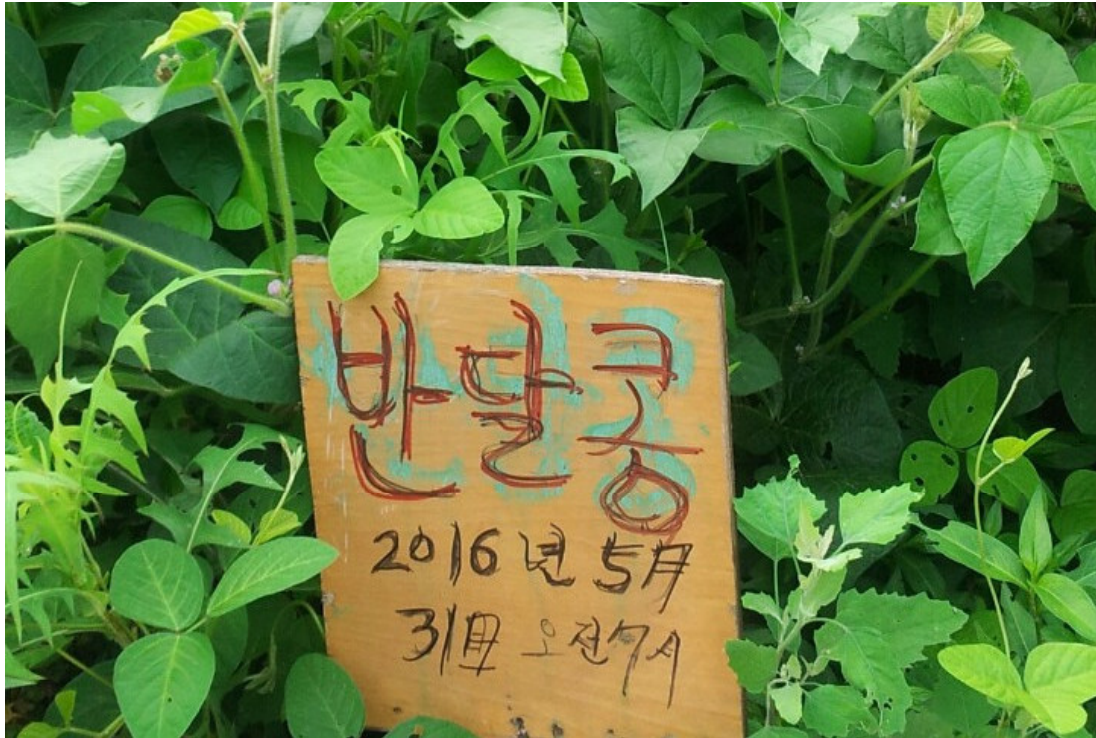 반달콩
2016년 5月
31日 오전7시